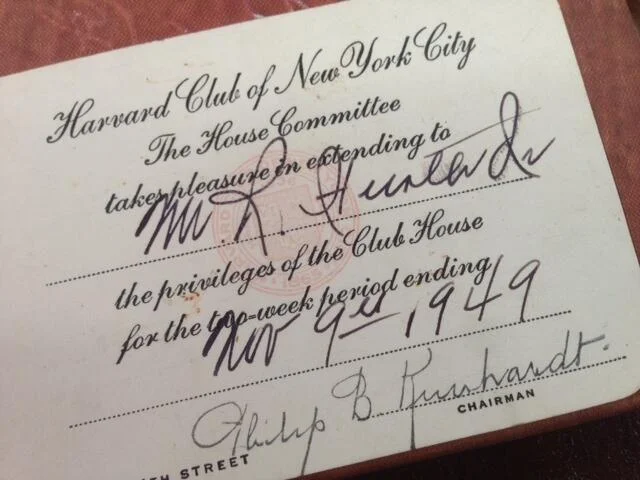 Harvard Club of New York City
The House Committee
takes pleasure in extending to
Mr R. Hunter Jr
the privileges of the Club House
for the two-week period ending
Nov 9th 1949
Philip B. Kunhardt.
CHAIRMAN
TH STREET